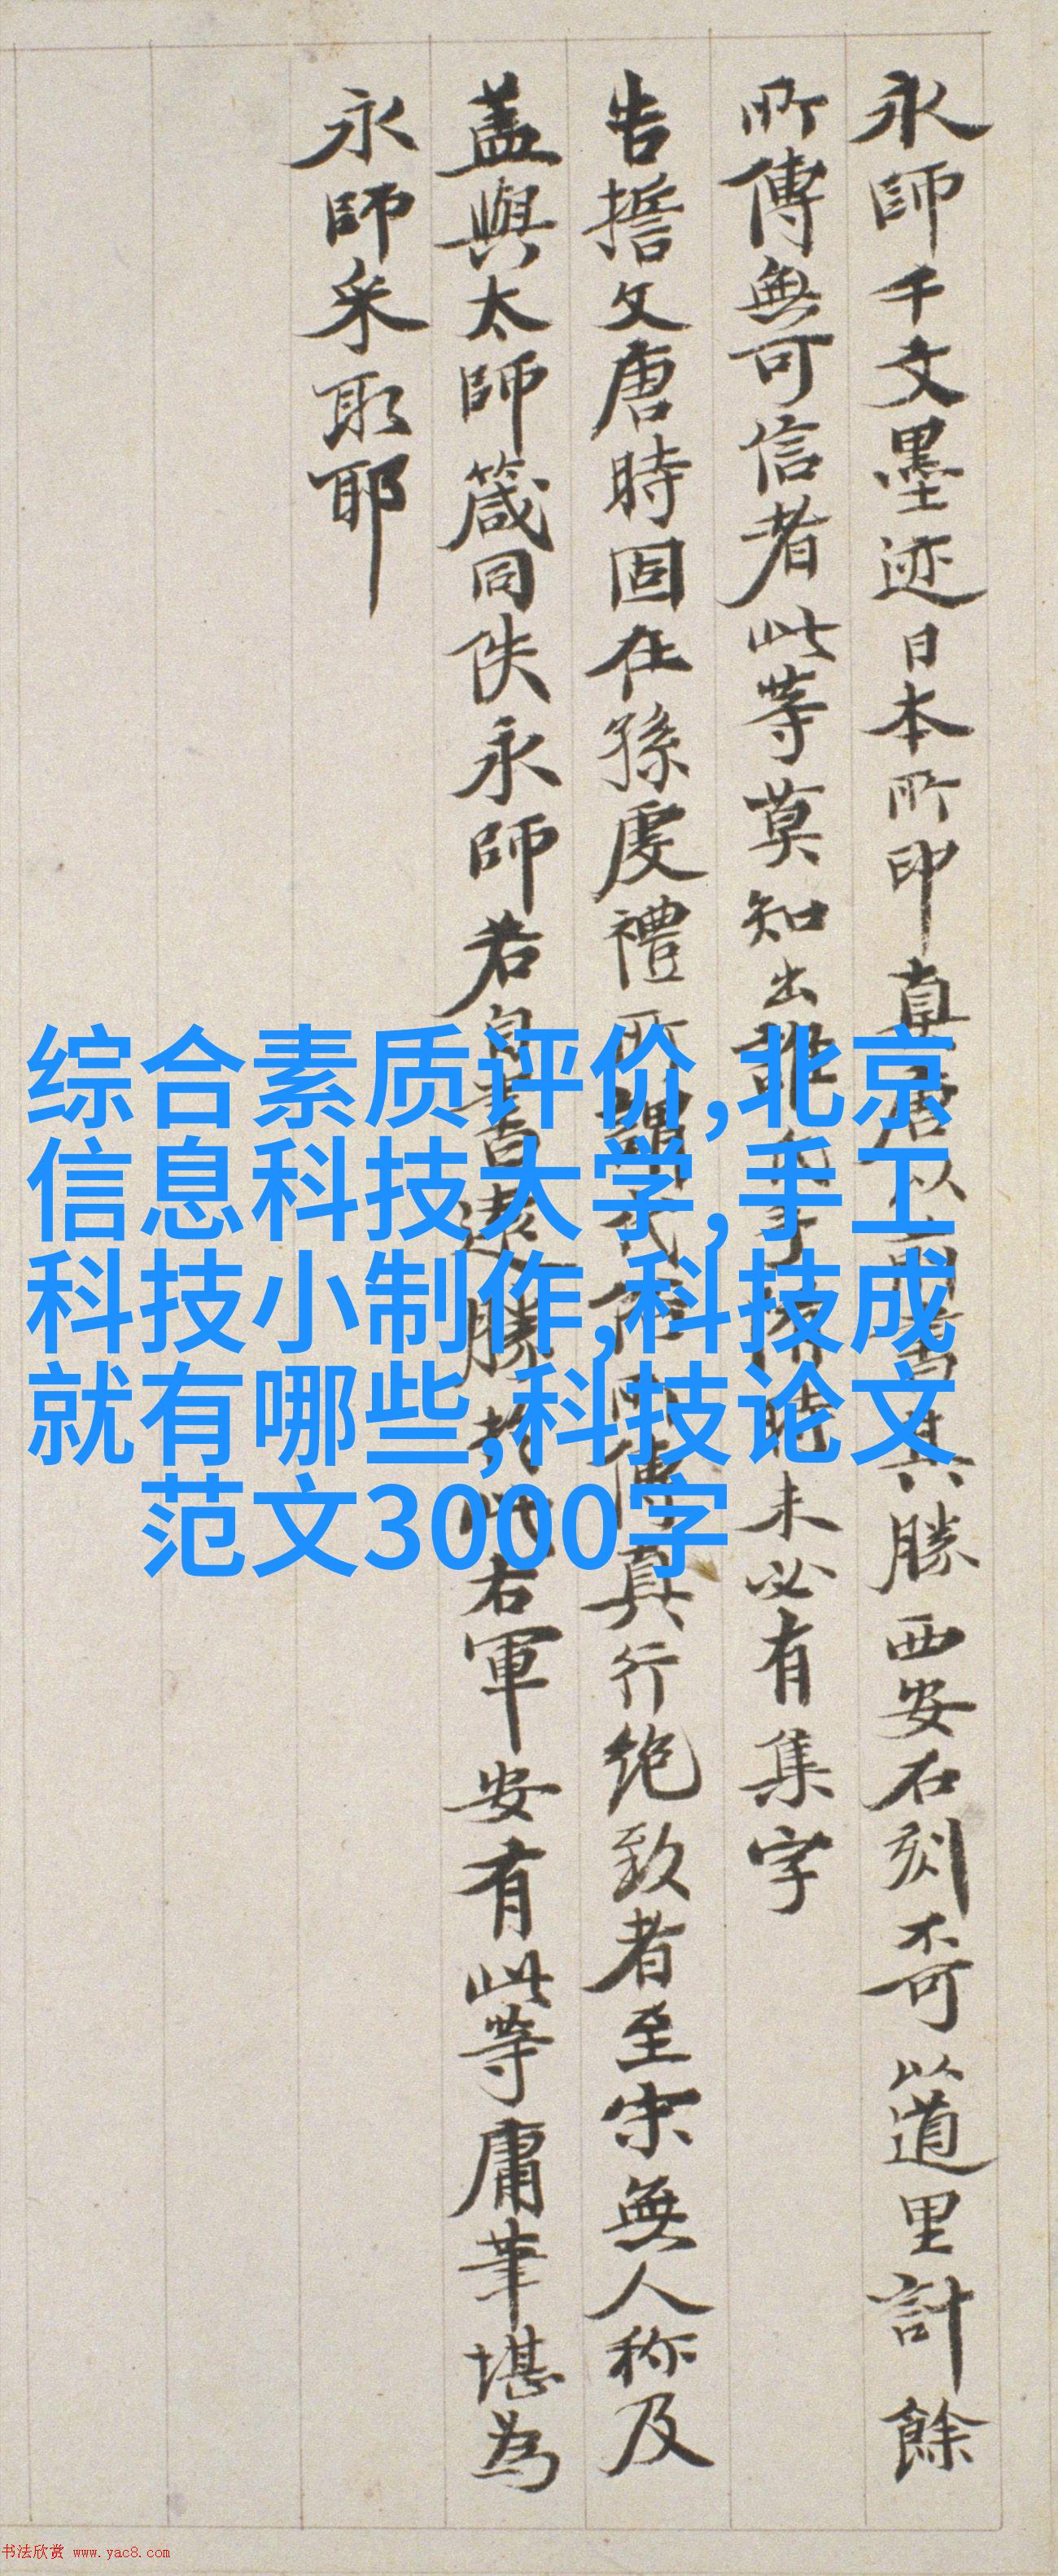 永師千文墨迹日本所印真唐以前書其勝西安石刻不可以道里計餘
所傳無可信者此等莫知出誰氏手隋時未必有集字
告擔文唐時固在孫虔禮所謂代俗所傳真行绝致者至宋無人称及
盖與太師箴同佚永師若自書遠勝於此右軍安有此等庸筆堪為
永師采取耶
综合素质评价,北京
信息科技大学,手工
科技小制作,科技成
就有哪些,科技论文
范文3000字
书法欣赏 www.yac8.com